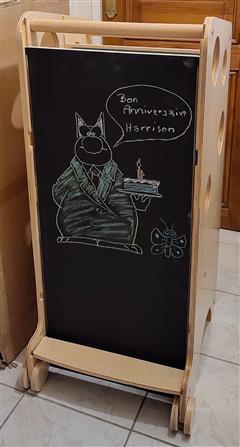 Bon
Anniversaire
Harrison